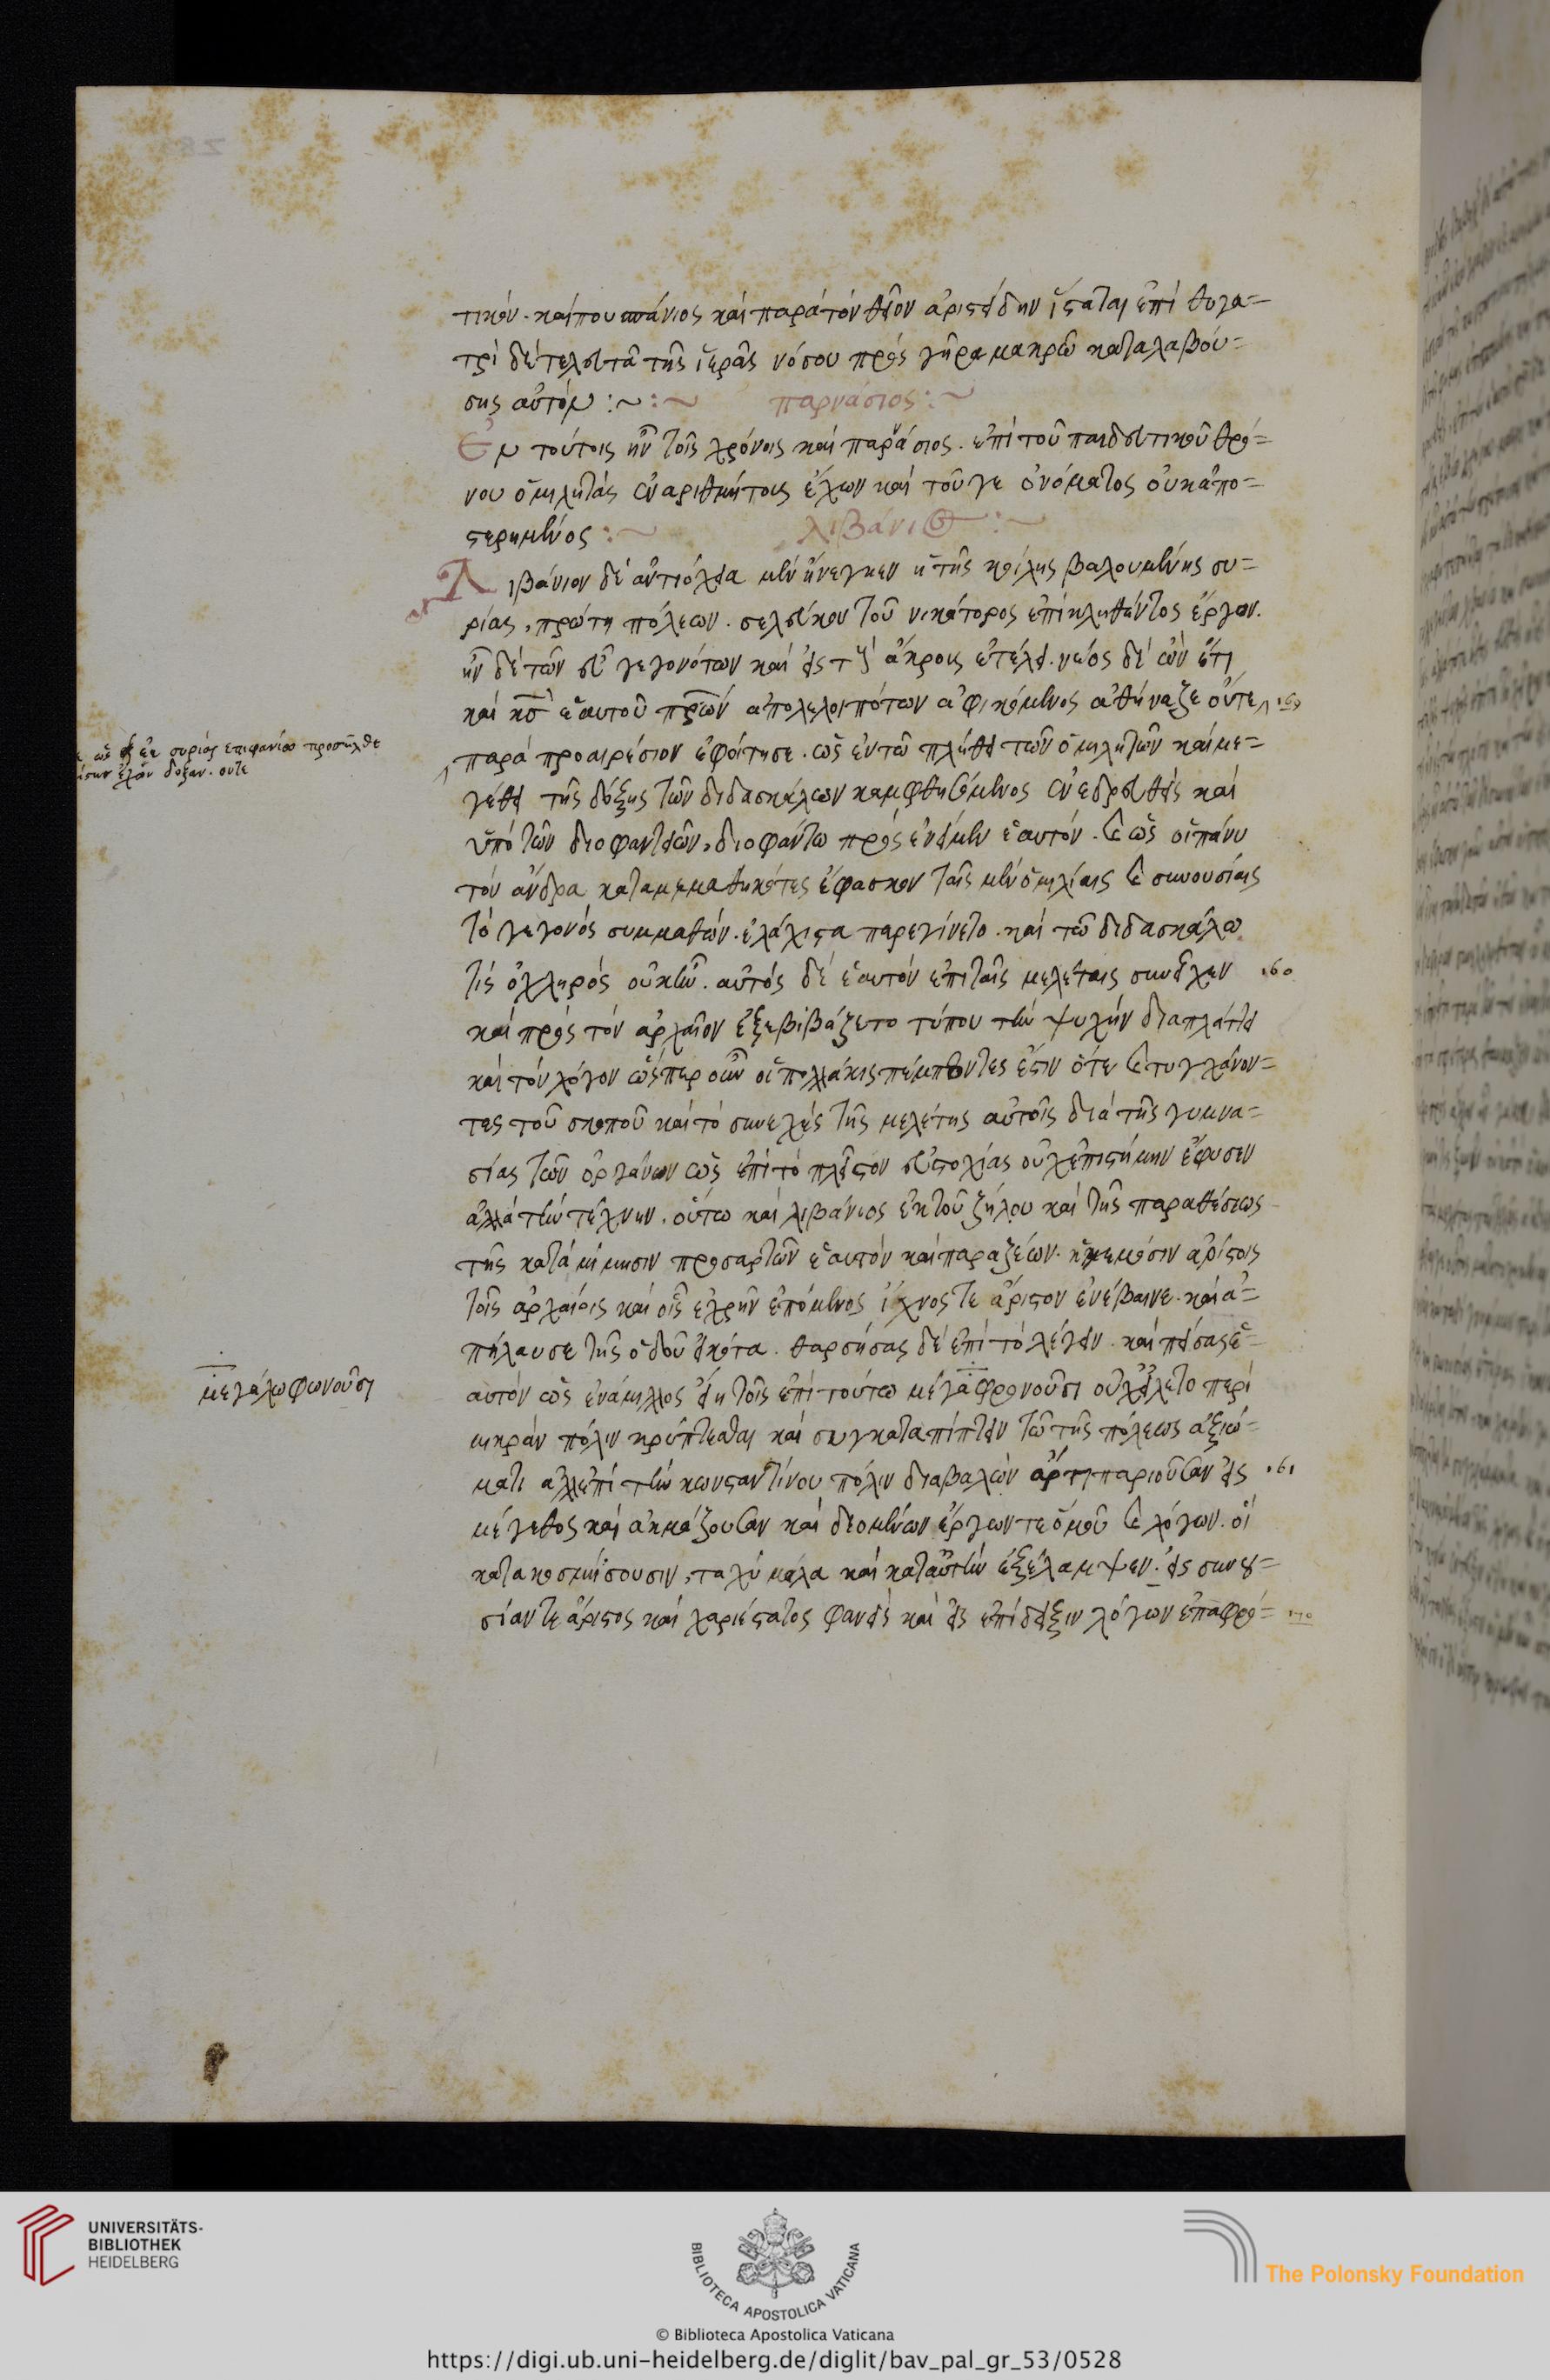 τικόν. καί που σπάνιος καὶ παρὰ τὸν θεῖον ἀριστείδην ἵσταται ἐπὶ θυγα=
τρὶ δὲ τελευτᾶ τῆς ἱερᾶς νόσου πρὸς γῆρα μακρῶ καταλαβού=
σης αὐτόν :~ :~ παρνάσιος :~
Ἐν τούτοις ἦν τοῖς χρόνοις καὶ παρνάσιος. ἐπὶ τοῦ παιδευτικοῦ θρό=
νου ὁμιλητὰς εὐαριθμήτους ἔχων καὶ τοῦγε ὀνόματος οὐκ ἀπο=
στερημένος :~ λιβάνιος :~
Λιβάνιον δὲ ἀντιόχεια μὲν ἤνεγκεν ἡ τῆς κοίλης καλουμένης συ=
ρίας, πρώτη πόλεων. σελεύκου τοῦ νικάτορος ἐπικληθέντος ἔργον.
ἦν δὲ τῶν εὖ γεγονότων καὶ εἰς τοὺς ἄκρους ἐτέλει. νέος δὲ ὢν ἔτι
καὶ κύριος ἑαυτοῦ πατέρων ἀπολελοιπότων ἀφικόμενος ἀθήναζε οὔτε 169
παρὰ προαιρέσιον ἐφοίτησε. ὡς ἐν τῶ πλήθει τῶν ὁμιλητῶν καὶ με=
γέθει τῆς δόξης τῶν διδασκάλων καλυφθησόμενος ἐνεδρευθεὶς καὶ
ὑπὸ τῶν διοφαντείων, διοφάντω προσένειμεν ἑαυτόν. καὶ ὡς οἱ πάνυ
τὸν ἄνδρα καταμεμαθηκότες ἔφασκον ταῖς μὲν ὁμιλίαις καὶ συνουσίαις
τὸ γεγονὸς συμμαθὼν. ἐλάχιστα παρεγίνετο. καὶ τῶ διδασκάλω
τίς ὀχληρὸς οὐκ ἦν. αὐτὸς δὲ ἑαυτὸν ἐπὶ ταῖς μελέταις συνεῖχεν 160
καὶ πρὸς τὸν ἀρχαῖον ἐξεβιβάζετο τύπον τὴν ψυχὴν διαπλάττει
καὶ τὸν λόγον ὥσπερ οὖν οἱ πολλάκις πέμποντες ἔστιν ὅτε καὶ τυγχάνον=
τες τοῦ σκοποῦ καὶ τὸ συνεχὲς τῆς μελέτης αὐτοῖς διὰ τῆς γυμνα=
σίας τῶν ὀργάνων ὡς ἐπὶ τὸ πλεῖστον εὐστοχίας οὐκ ἐπιστήμην ἔφυσεν
ἀλλὰ τὴν τέχνην. οὕτω καὶ λιβάνιος ἐκ τοῦ ζήλου καὶ τῆς παραθέσεως
τῆς κατὰ μίμησιν προσαρτῶν ἑαυτὸν καὶ παραξέων. ἡγεμόσιν ἀρίστοις
τοῖς ἀρχαίοις καὶ οἷς ἐχρῆν ἑπόμενος ἴχνος τε ἄριστον ἐνέβαινε. καὶ ἀ=
πήλαυσε τῆς ὁδοῦ εἰκότα. θαρσήσας δὲ ἐπὶ τὸ λέγειν. καὶ πείσας ἑ=
αυτὸν ὡς ἐνάμιλλος εἴη τοῖς ἐπὶ τούτω μέγα φρονοῦσι οὐχ εἵλετο περὶ
μικρὰν πόλιν κρύπτεσθαι καὶ συγκαταπίπτειν τῶ τῆς πόλεως ἀξιώ=
ματι ἀλλ' ἐπὶ τὴν κωνσταντίνου πόλιν διαβαλὼν ἄρτι παριοῦσαν εἰς 161
μέγεθος καὶ ἀκμάζουσαν καὶ δεομένων ἔργων τε ὁμοῦ καὶ λόγων. οἳ
κατακοσμήσουσιν, ταχὺ μάλα καὶ κατ' αὐτὴν ἐξέλαμψεν. εἰς συνου=
σίαν τε ἄριστος καὶ χαριέστατος φανεὶς καὶ εἰς ἐπίδειξιν λόγων ἐπαφρό= 170
ὡς ἐκ συρίας ἐπιφανίω προσῆλθε
δόξαν. οὔτε
μεγάλω φωνοῦσι
UNIVERSITÄTS-
BIBLIOTHEK
HEIDELBERG
BIBLIOTECA APOSTOLICA VATICANA
© Biblioteca Apostolica Vaticana
The Polonsky Foundation
https://digi.ub.uni-heidelberg.de/diglit/bav_pal_gr_53/0528